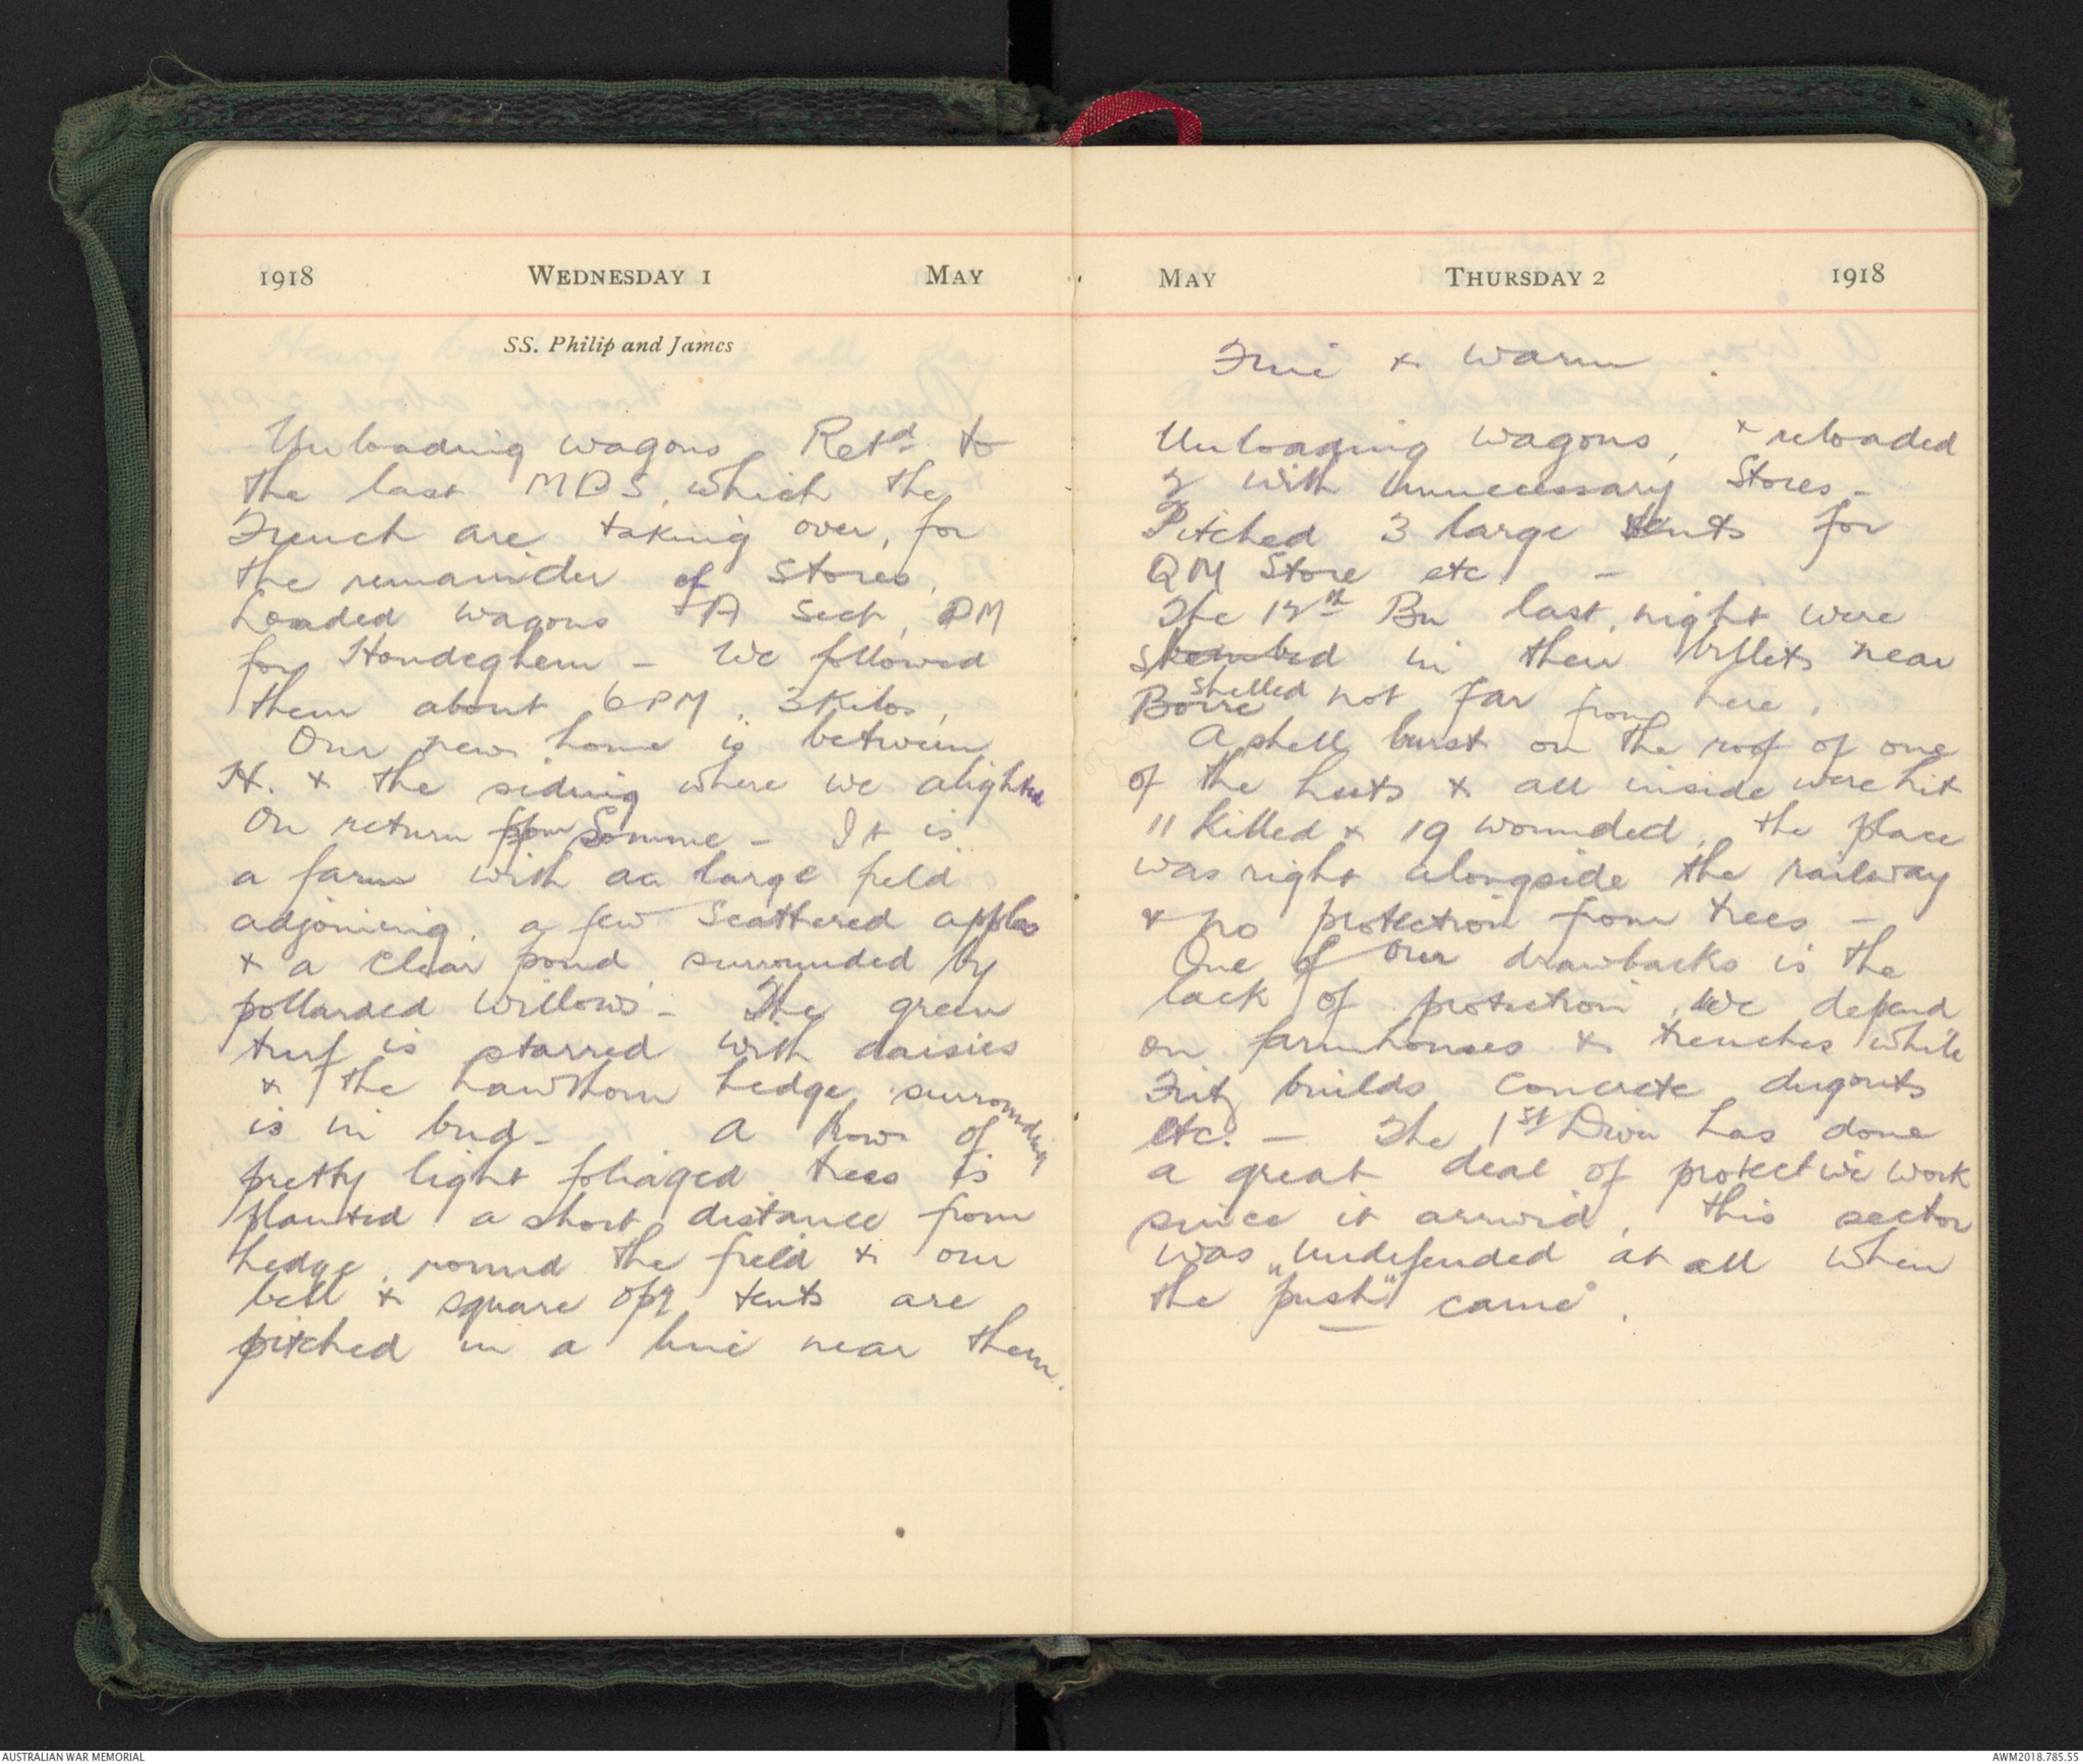 1918 WEDNESDAY 1 MAY
SS. Philip and James
Unloading wagons Retd to
the last MDS, which the
French are taking over, for
the remainder of stores.
Loaded wagons A Sect, PM
for Hondeghem - We followed
them about 6 PM. 3 Kilos,
Our new home is between
H. & the siding where we alighted
On return from Somme - It is
a farm with a large field
adjoining, a few scattered apples
& a clear pond surrounded by
pollarded willows - The green
turf is starred with daisies
& the hawthorn hedge surrounding
is in bud - A Row of
pretty light foliaged trees is
planted a short distance from
hedge, round the field & our
bell & square opg tents are
pitched in a line near them.
MAY THURSDAY 2 1918
Fine & warm.
Unloading wagons, & reloaded
2 with unnecessary Stores -
Pitched 3 large tents for
QM Store etc. -
The 12th Bn last night were
shelled in their billets near
Borre not far from here.
A shell burst on the roof of one
of the huts & all inside were hit
11 killed & 19 wounded, the place
was right alongside the railway
& no protection from trees -
One of our drawbacks is the
lack of protection, We depend
on farmhouses & trenches while
Fritz builds concrete dugouts
etc. - The 1st Divn has done
a great deal of protective work
since it arrived, this sector
was undefended at all when
the "push" came.
AUSTRALIAN WAR MEMORIAL
AWM2018.785.55